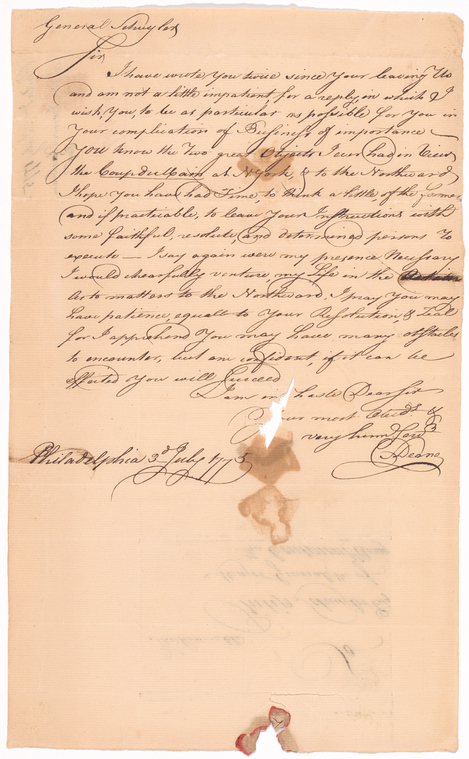 General Schuyler
Sir
I have wrote You twice since Your leaving Us
and am not a little impatient, for a reply, in which I
wish, You, to be as particular as possible for You in
Your complication of Business of importance —
You know the Two great Objects I ever had in View
the Coup de Main at N York, & to the Northward
I hope You have had Time, to think a little, of the former
and if practicable, to leave Your Instructions with
some faithful, resolute, and determined persons to
execute — I say again were my presence Necessary
I would chearfully venture my Life in the
As to matters to the Northward, I pray You may
have patience, equal to Your Resolution, & Zeal
for I apprehend You may have many obstacles
to encounter, but am confident, if it can be
effected You will Succeed
I am in haste Dear Sir
Your most Obedt. &
very hum
S Deane
Philadelphia 3d. July 1775
To